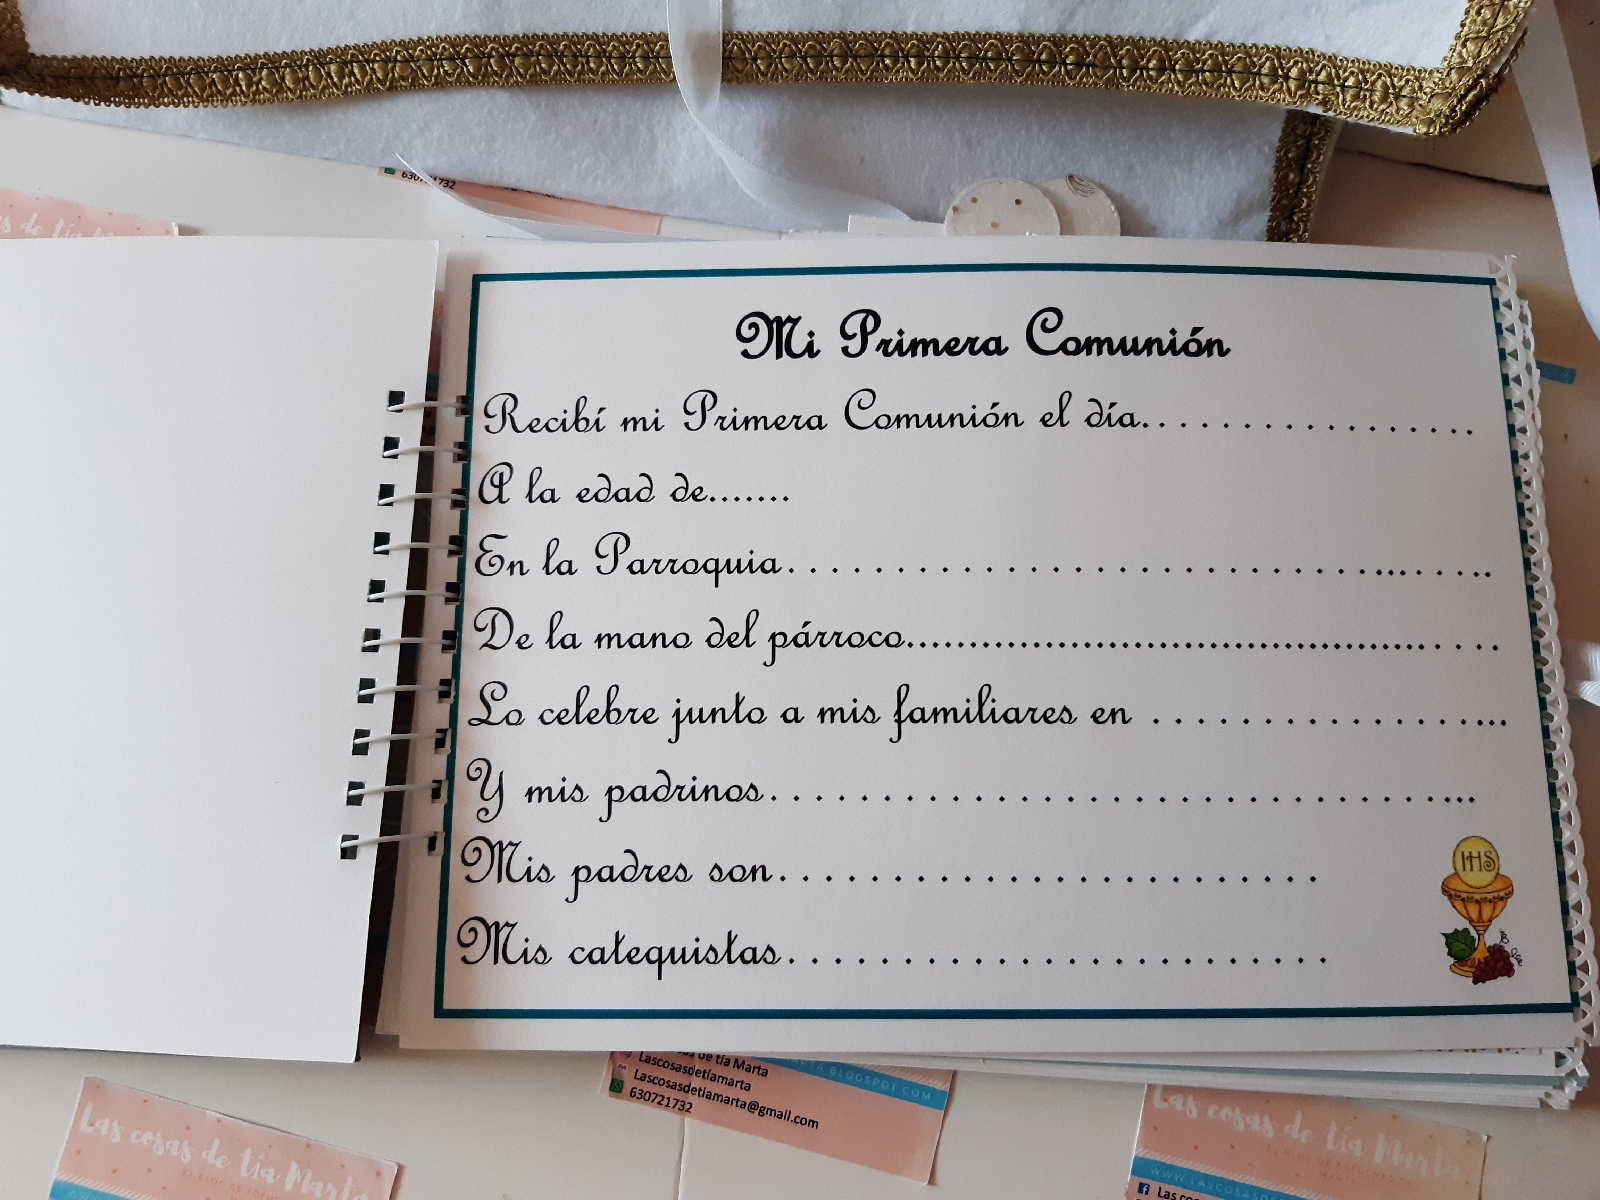 630721732
Mi Primera Comunión
Recibí mi Primera Comunión el día. . . . . . . . . . . . . . . . .
A la edad de.......
En la Parroquia. . . . . . . . . . . . . . . . . . . . . . . . . . . .... . . ..
De la mano del párroco............................................. . . .
Lo celebre junto a mis familiares en . . . . . . . . . . . . . . . . ...
Y mis padrinos. . . . . . . . . . . . . . . . . . . . . . . . . . . . . ...
Mis padres son. . . . . . . . . . . . . . . . . . . . . . . .
IHS
Mis catequistas. . . . . . . . . . . . . . . . . . . . . . . .
Las cosas de tía Marta
Lascosasdetiamarta
Lascosasdetiamarta@gmail.com
630721732
MARTA.BLOGSPOT.COM
Las cosas de tía Marta
Las cosas de tía Marta